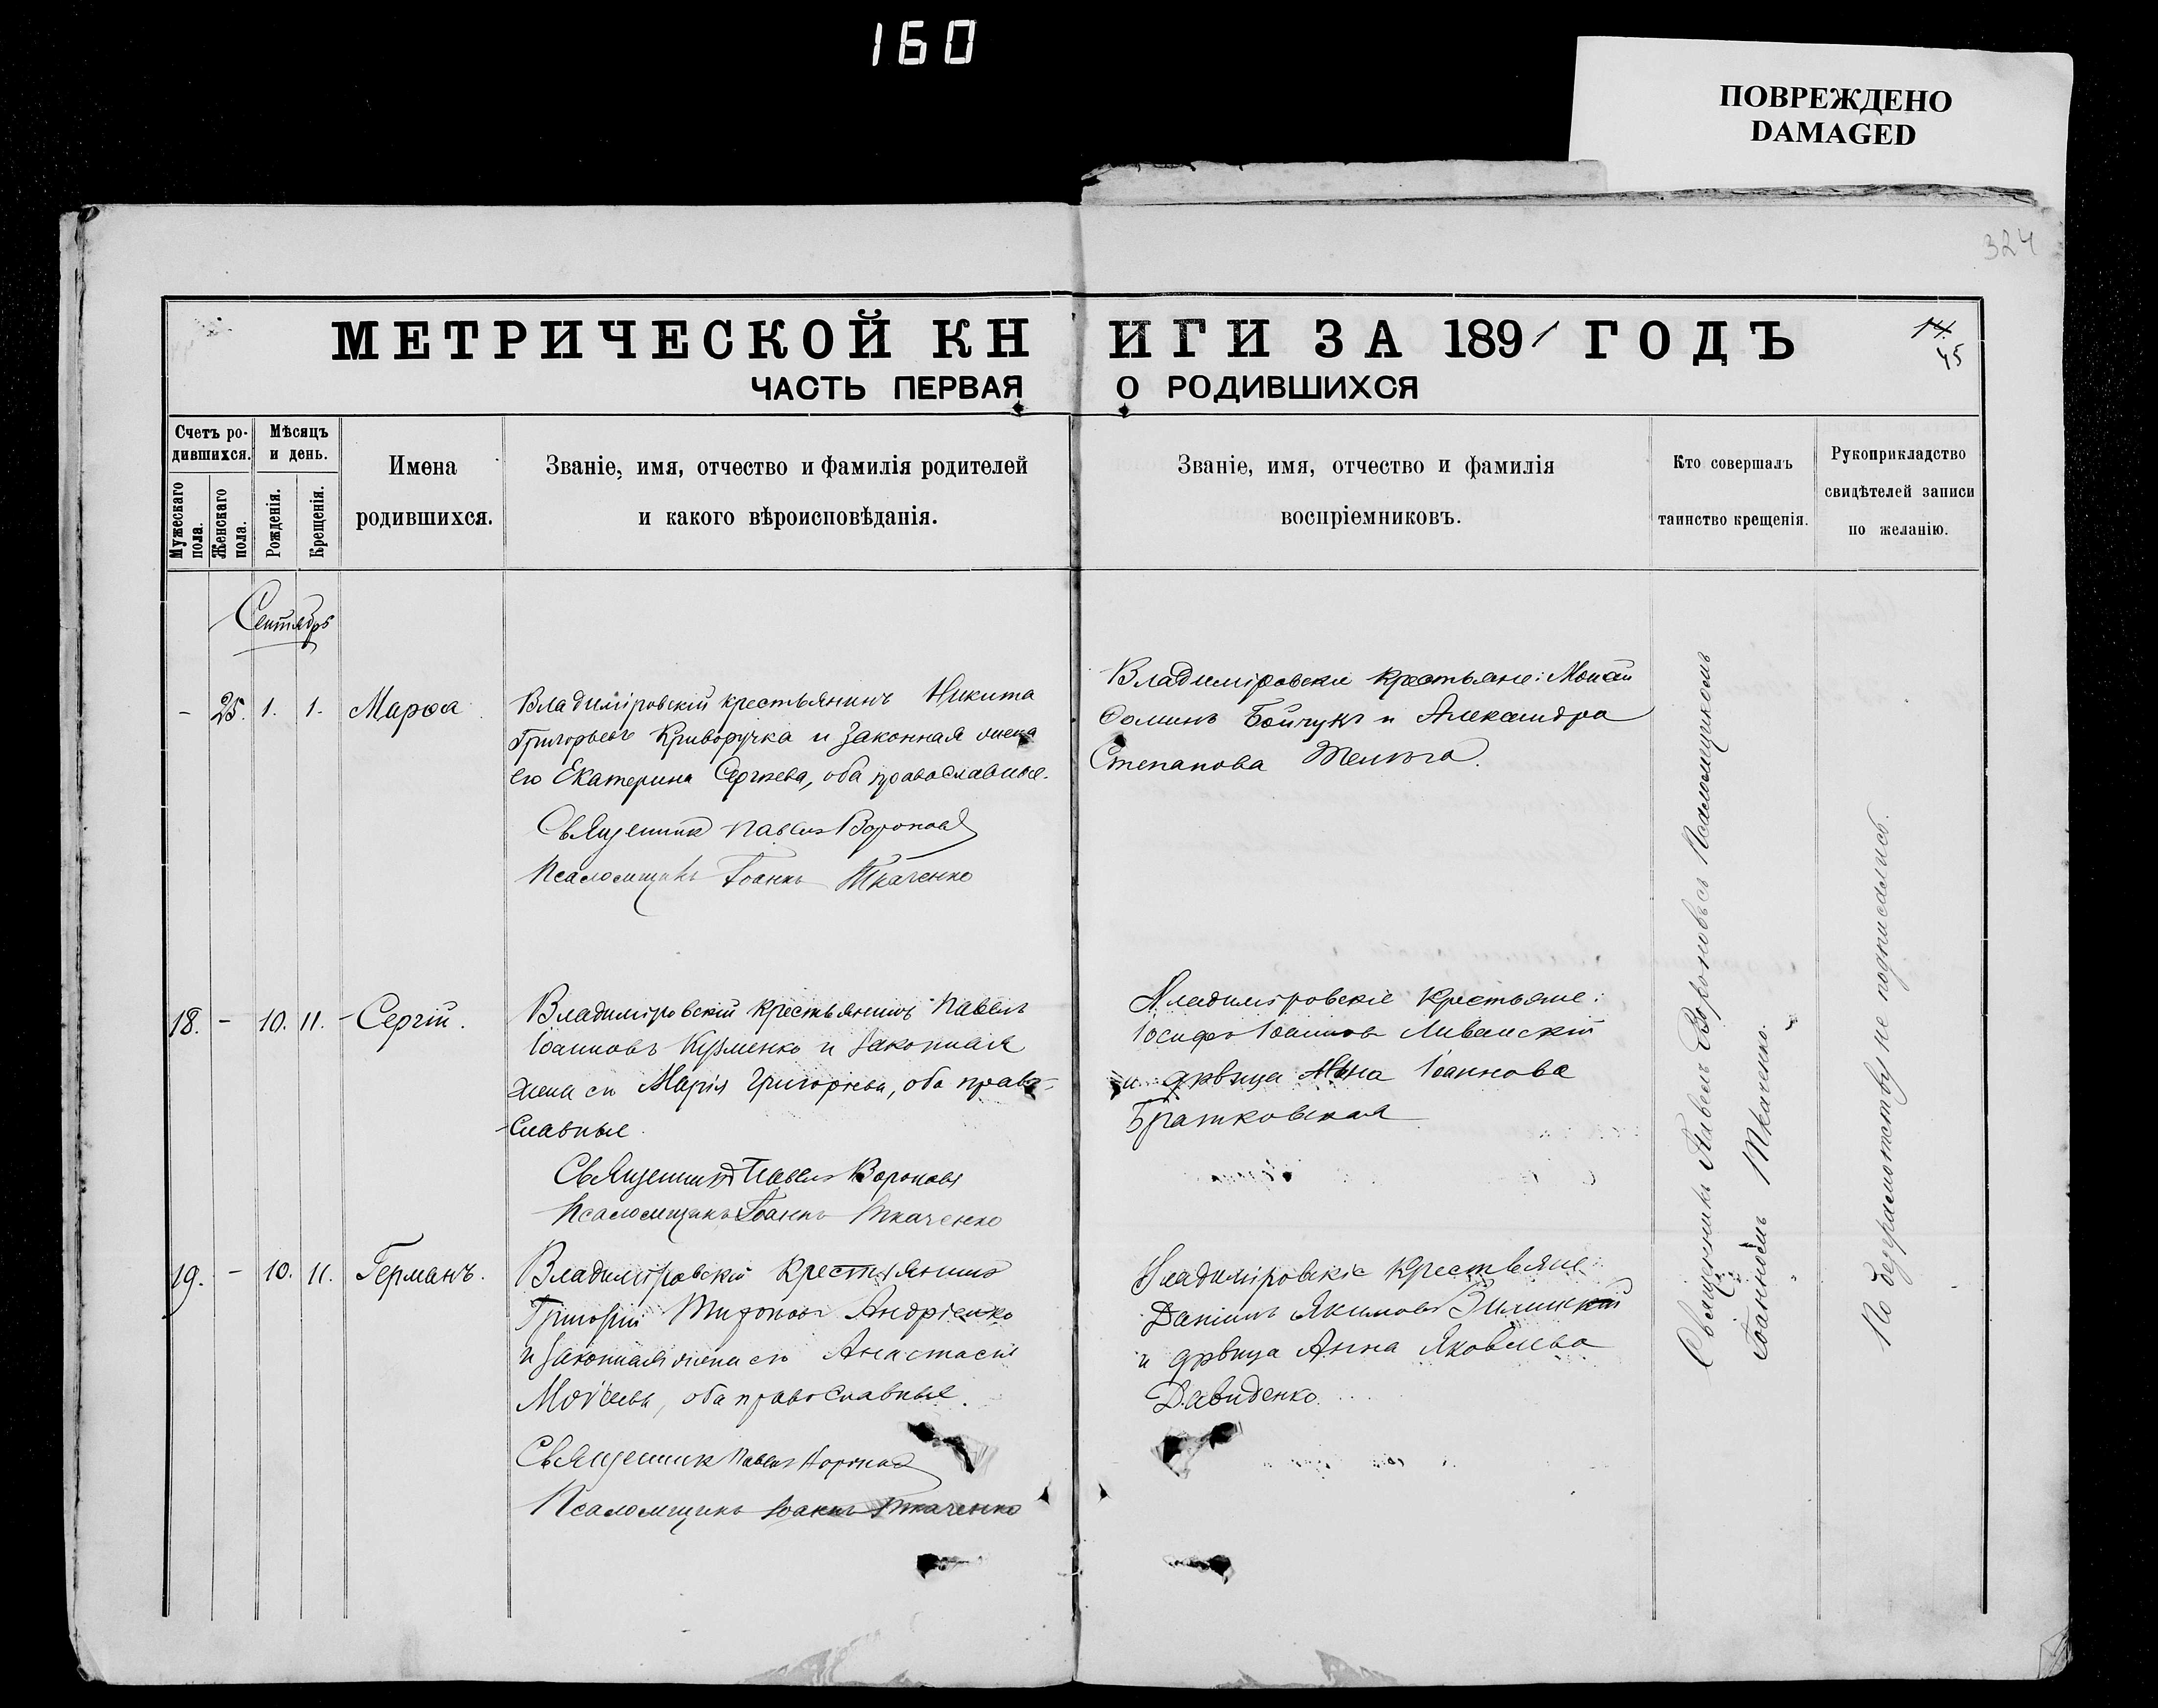 160
ПОВРЕЖДЕНО
DAMAGED
324
МЕТРИЧЕСКОЙ КНИГИ ЗА 1891 ГОДЪ
14.
45
ЧАСТЬ ПЕРВАЯ О РОДИВШИХСЯ
Счетъ ро-
дившихся.
Мужескаго
пола.
Женскаго
пола.
Мѣсяцъ
и день.
Рожденія.
Крещенія.
Имена
родившихся.
Званіе, имя, отчество и фамилія родителей
и какого вѣроисповѣданія.
Званіе, имя, отчество и фамилія
воспріемниковъ.
Кто совершалъ
таинство крещенія.
Рукоприкладство
свидѣтелей записи
по желанію.
Сентябрь
- 25. 1. 1. Марѳа
Владиміровскій крестьянинъ Никита
Григорьевъ Криворучка и законная жена
его Екатерина Сергѣева, оба православные.
Священникъ Павелъ Вороновъ
Псаломщикъ Іоаннъ Ткаченко
Владиміровскіе крестьяне:
Ѳоминъ Бойчукъ и Александра
Степанова
18. - 10. 11. Сергій.
Владиміровскій крестьянинъ Павелъ
Іоанновъ Кузменко и законная
жена его Марія Григорьева, оба право-
славные.
Священникъ Павелъ Вороновъ
Псаломщикъ Іоаннъ Ткаченко
Владиміровскіе крестьяне:
Іосифъ Іоанновъ Ливанскій
и дѣвица Анна Іоаннова
Братковская
19. - 10. 11. Германъ.
Владиміровскій крестьянинъ
Григорій Андріенко
и законная жена его Анастасія
Моѵсеева, оба православные.
Священникъ Павелъ Вороновъ
Псаломщикъ Іоаннъ Ткаченко
Владиміровскіе крестьяне
Даніилъ Якимовъ
и дѣвица Анна Яковлева
Давиденко.
Священникъ Павелъ Вороновъ съ Псаломщикомъ
Іоанномъ Ткаченко.
По безграмотству не подписались.